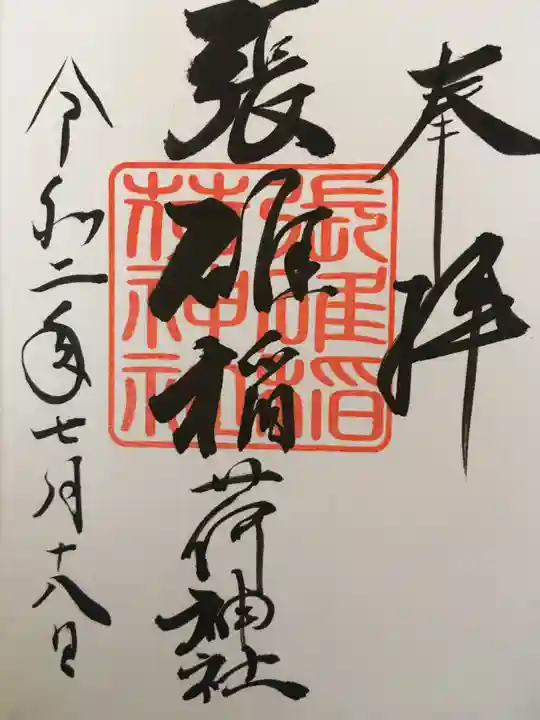 奉拝
張碓稲荷神社
張碓稲荷神社
令和二年七月十八日